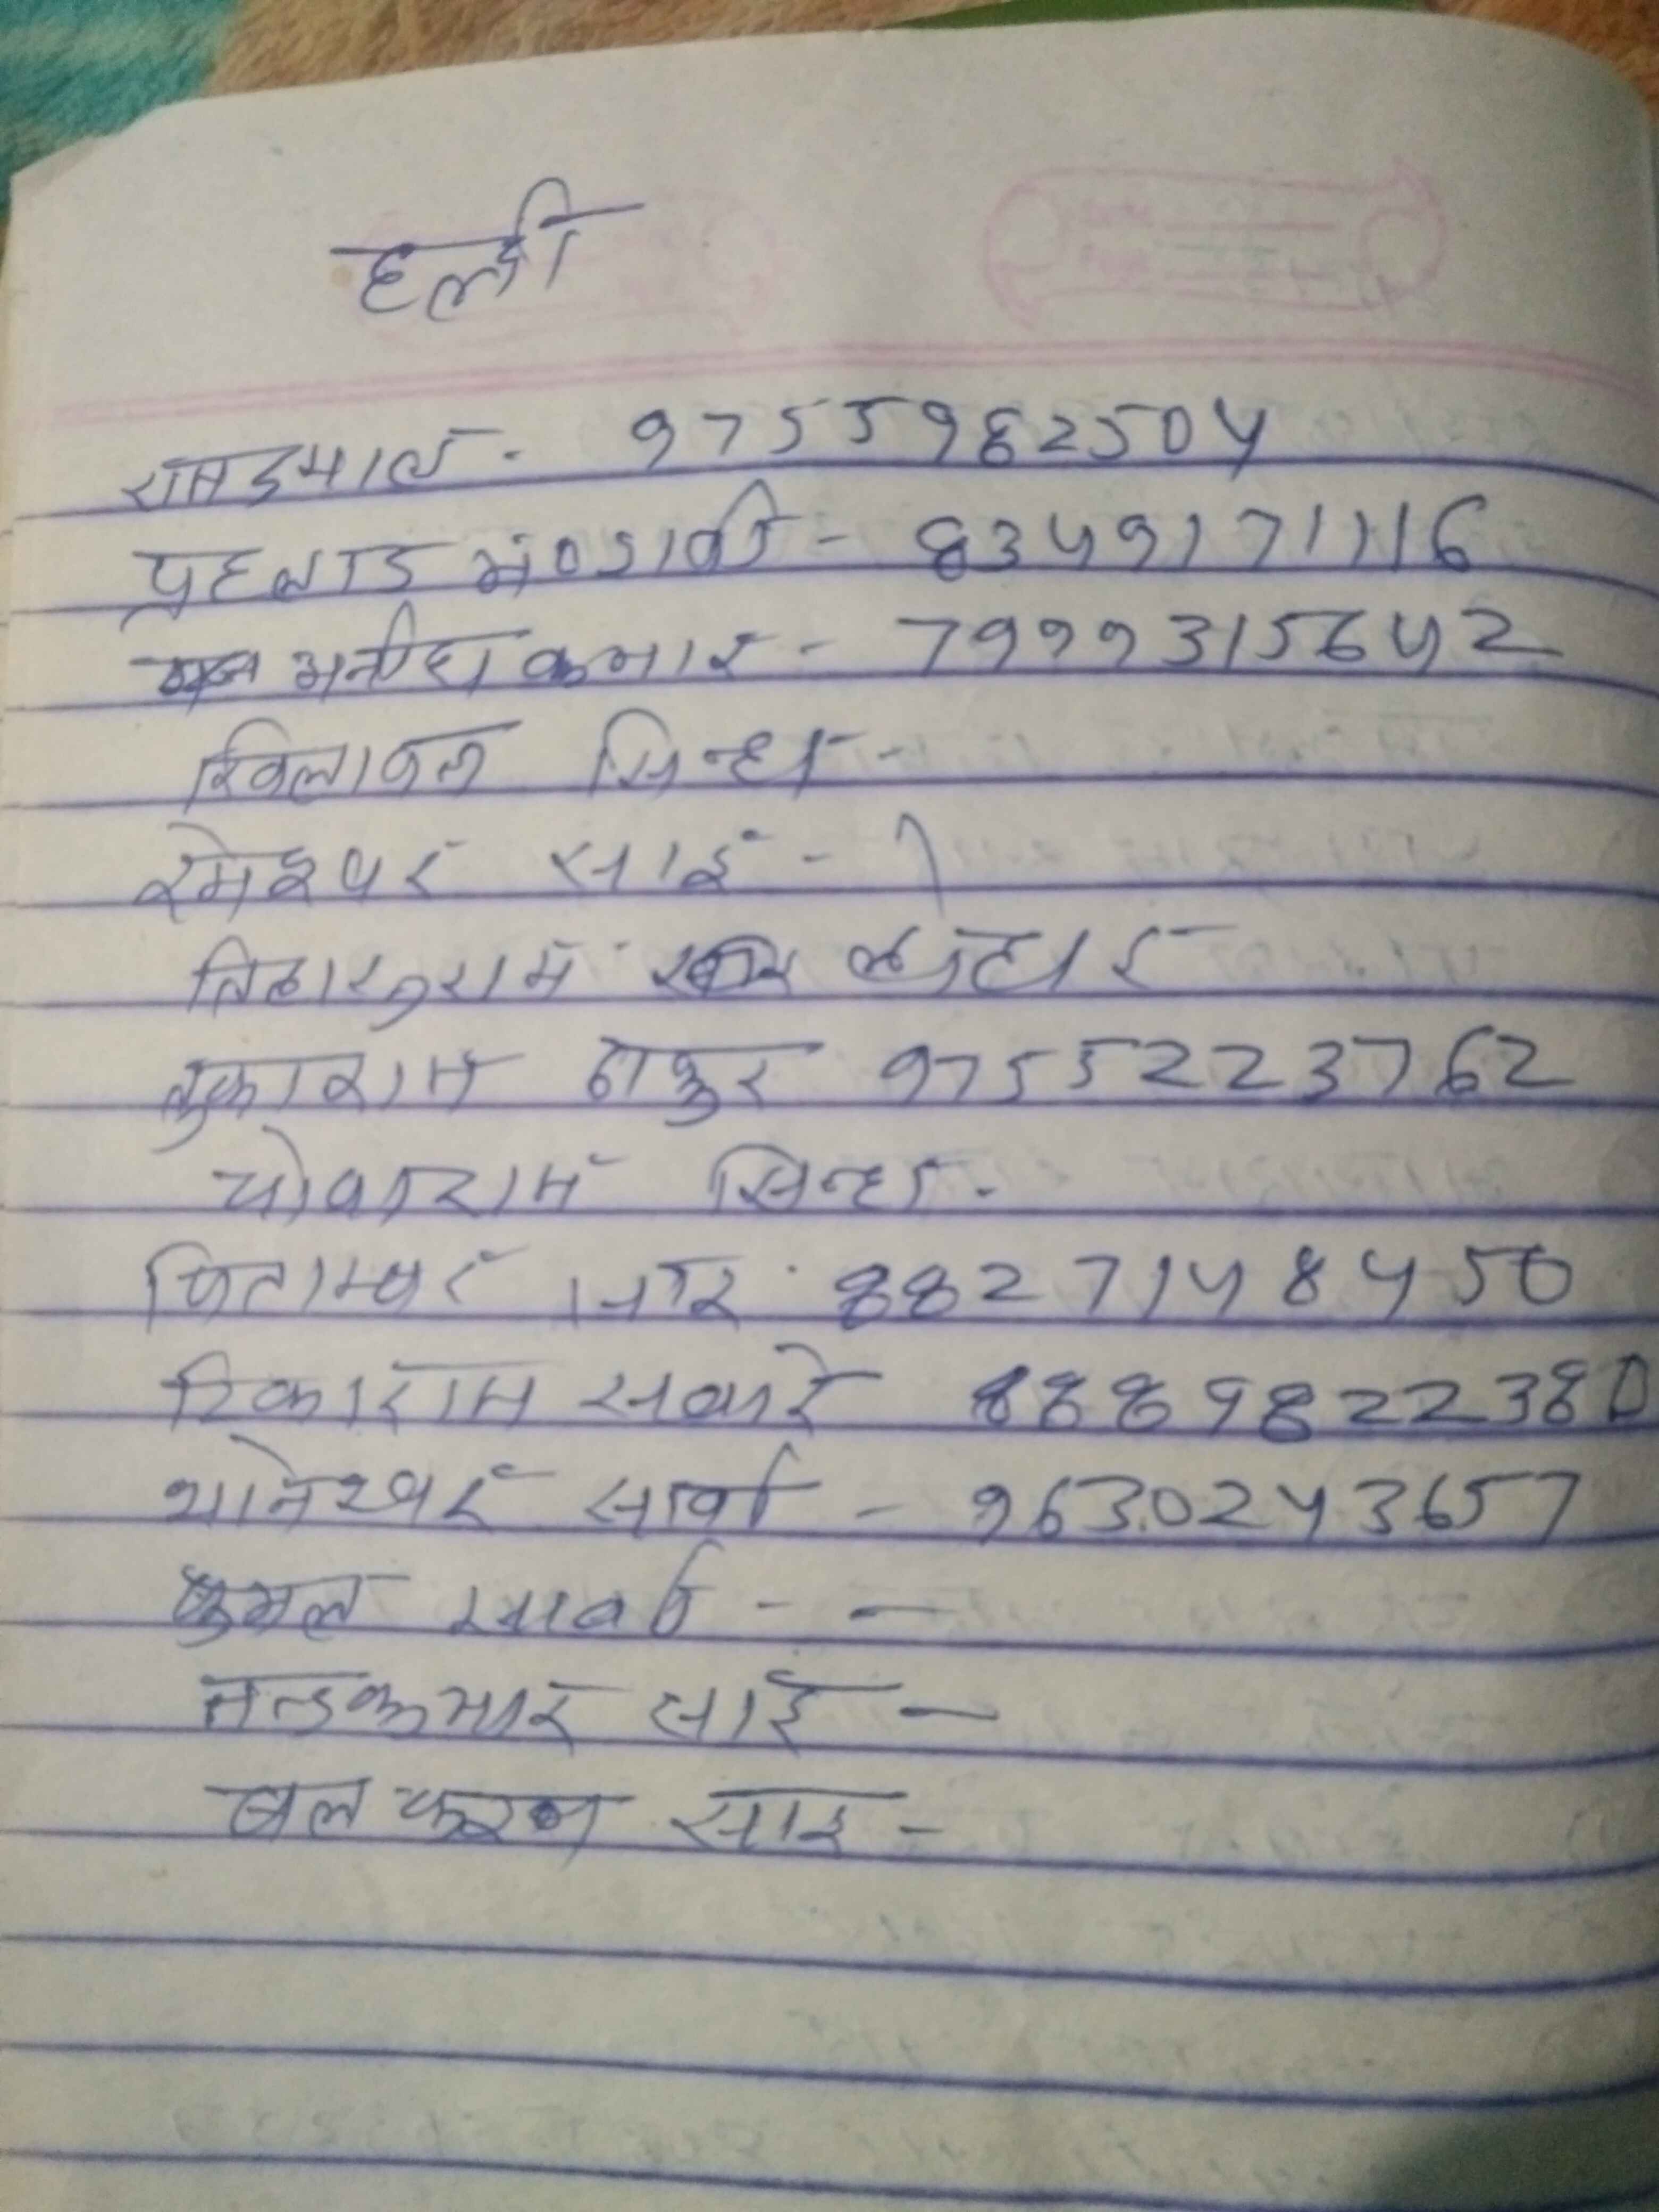 हल्दी
रामदयाल - 9755982504
प्रहलाद मण्डावी - 8349171116
मनीष कुमार - 7999315642
खिलावन सिन्हा -
रमेश्वर साई -
राम लोहार
तुकाराम ठाकुर 9755223762
सिन्हा -
पिताम्बर 8827148450
टिकाराम 8889822380
थानेश्वर सार्वा - 9630243657
कमल सार्वा - -
नन्दकुमार साई -
बलकरन साइ -